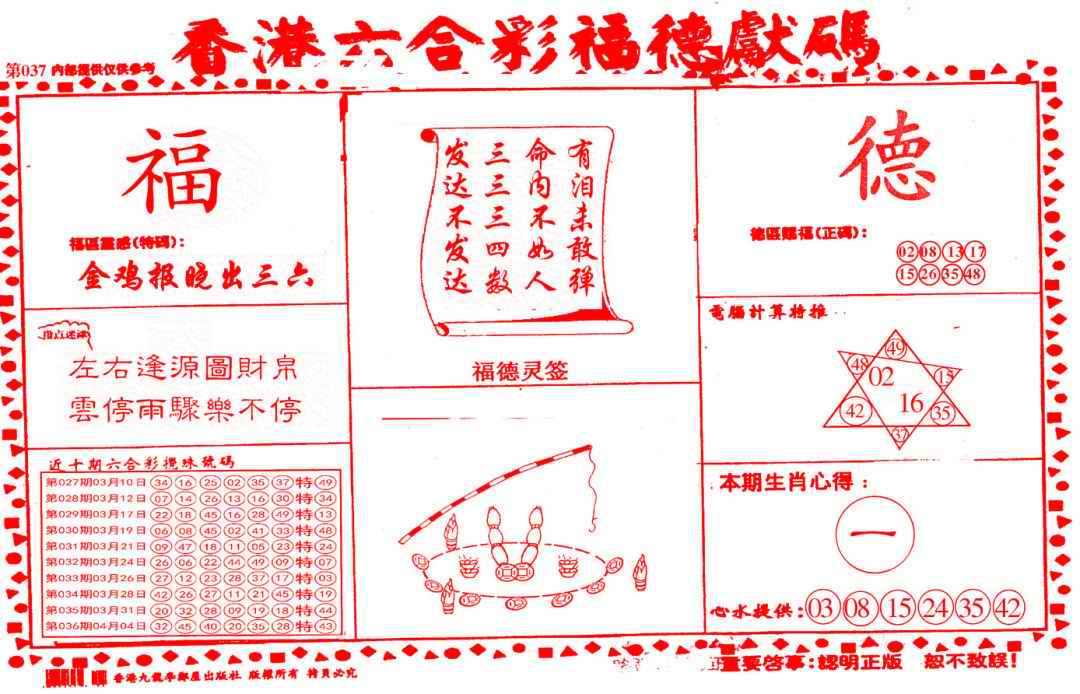 香港六合彩福德獻碼
第037 内部提供仅供参考
福
福區靈感(特碼):
金鸡报晓出三六
指点迷津
左右逢源圖財帛
雲停雨驟樂不停
近十期六合彩攪珠號碼
第027期03月10日 34 16 25 02 35 37 特 49
第028期03月12日 07 14 26 13 16 30 特 34
第029期03月17日 22 18 45 16 28 49 特 13
第030期03月19日 06 08 45 02 41 33 特 48
第031期03月21日 09 47 18 11 05 23 特 24
第032期03月24日 26 06 22 44 49 09 特 07
第033期03月26日 27 12 23 28 37 17 特 03
第034期03月28日 42 26 27 11 21 45 特 19
第035期03月31日 20 32 28 09 19 18 特 44
第036期04月04日 32 45 40 20 35 28 特 43
有泪未敢弹
命内不如人
三三三四数
发达不发达
福德灵签
德
德區賜福(正碼):
02 08 13 17
15 26 35 48
電腦計算特推
49
48 02 15
42 16 35
37
本期生肖心得:
一
心水提供: 03 08 15 24 35 42
香港九龍 出版社 版權所有
重要啓事:認明正版 恕不致誤!